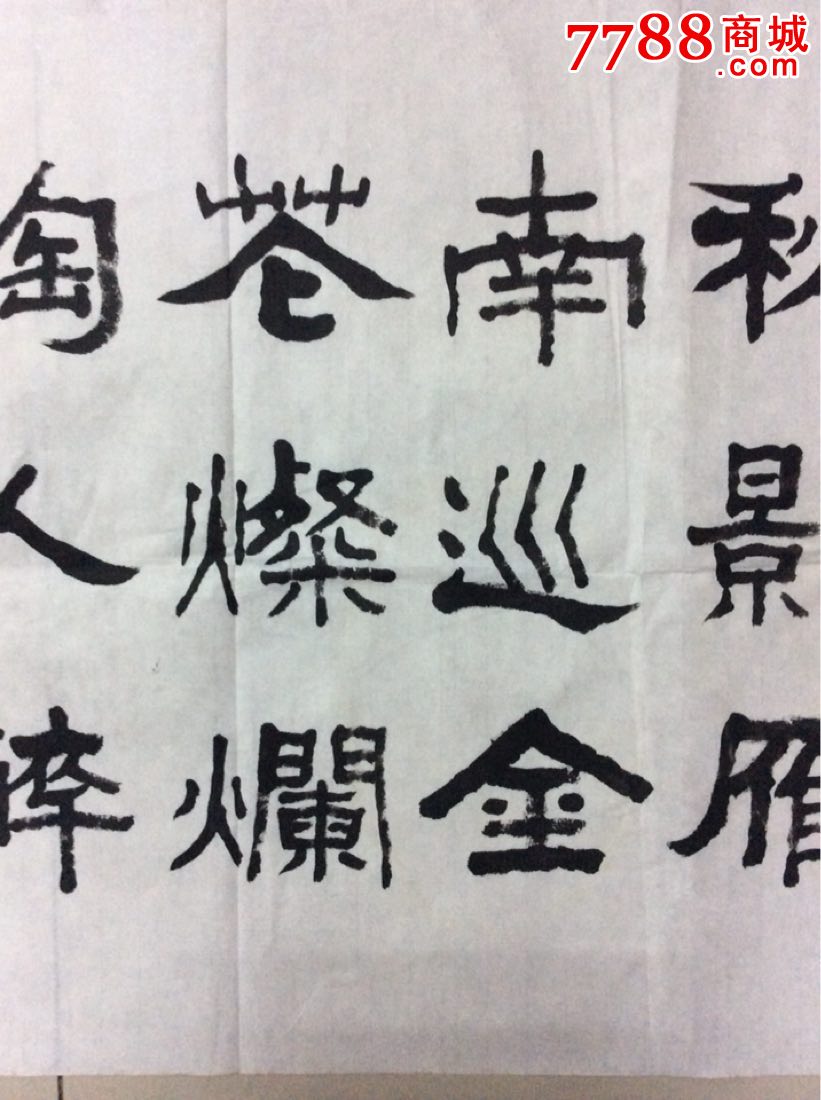 7788商城
.com
秋景雁
南巡金
花燦爛
陶人醉